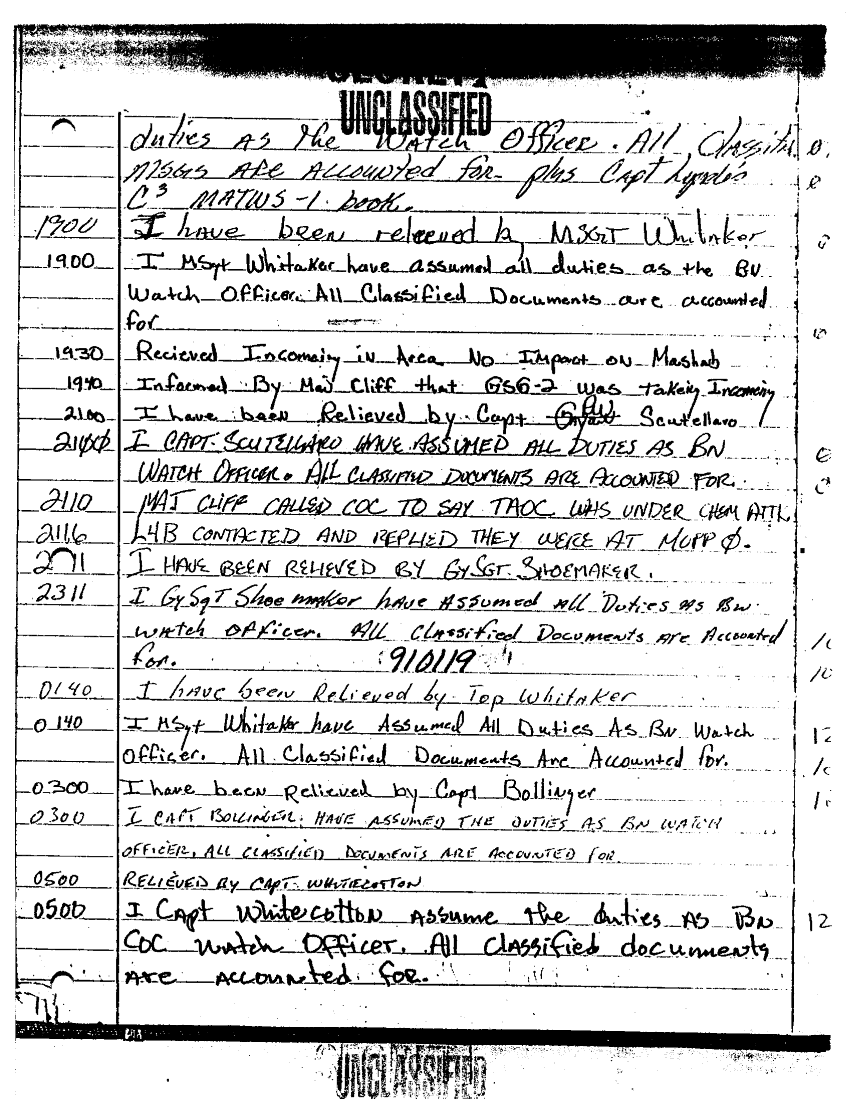 SECRET
UNCLASSIFIED
duties as the Watch Officer. All Classifi
MSGs Are Accounted for plus Capt
C³ MATWS-1 book.
1900 I have been releeved by MSGT Whitaker
1900 I MSgt Whitaker have assumed all duties as the BN
Watch Officer. All Classified Documents are accounted
for
1930 Recieved Incomeing in Area No Impact on Mashab
1940 Informed By Maj Cliff that GSG-2 was takeing Incomeing
2100 I have been Relieved by Capt Scutellaro
2100 I CAPT. SCUTELLARO HAVE ASSUMED ALL DUTIES AS BN
WATCH OFFICER. ALL CLASSIFIED DOCUMENTS ARE ACCOUNTED FOR.
2110 MAJ CLIFF CALLED COC TO SAY TAOC WAS UNDER CHEM ATTK
2116 CONTACTED AND REPLIED THEY WERE AT MOPP Ø.
I HAVE BEEN RELIEVED BY GYSGT. SHOEMAKER.
2311 I GySgT Shoemaker have Assumed All Duties as BN
watch officer. All Classified Documents Are Accounted
for. 910119
0140 I have been Relieved by Top Whitaker
0140 I MSgt Whitaker have Assumed All Duties As BN Watch
Officer. All Classified Documents Are Accounted for.
0300 I have been Relieved by Capt Bollinger
0300 I CAPT BOLLINGER, HAVE ASSUMED THE DUTIES AS BN WATCH
OFFICER, ALL CLASSIFIED DOCUMENTS ARE ACCOUNTED FOR.
0500 RELIEVED BY CAPT. WHITECOTTON
0500 I Capt Whitecotton assume the duties as BN
COC watch Officer. All Classified documments
Are accounted for.
UNCLASSIFIED